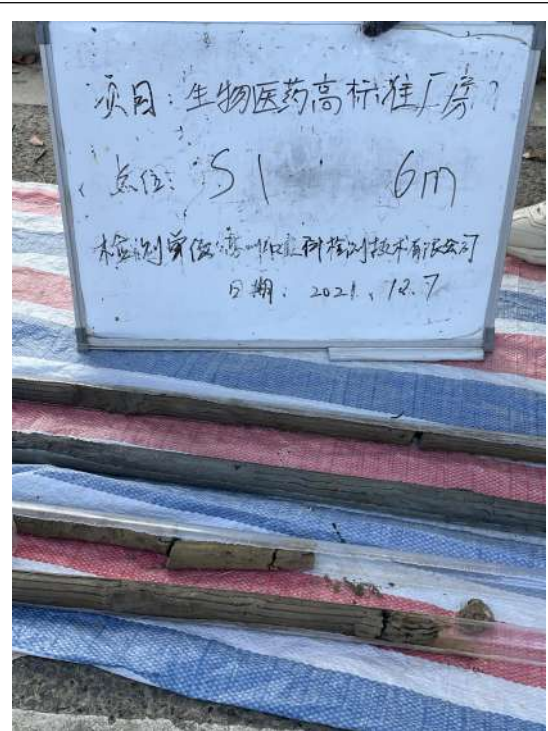 项目:生物医药高标准厂房
点位:S1 6m
检测单位: 检测技术有限公司
日期:2021.12.7